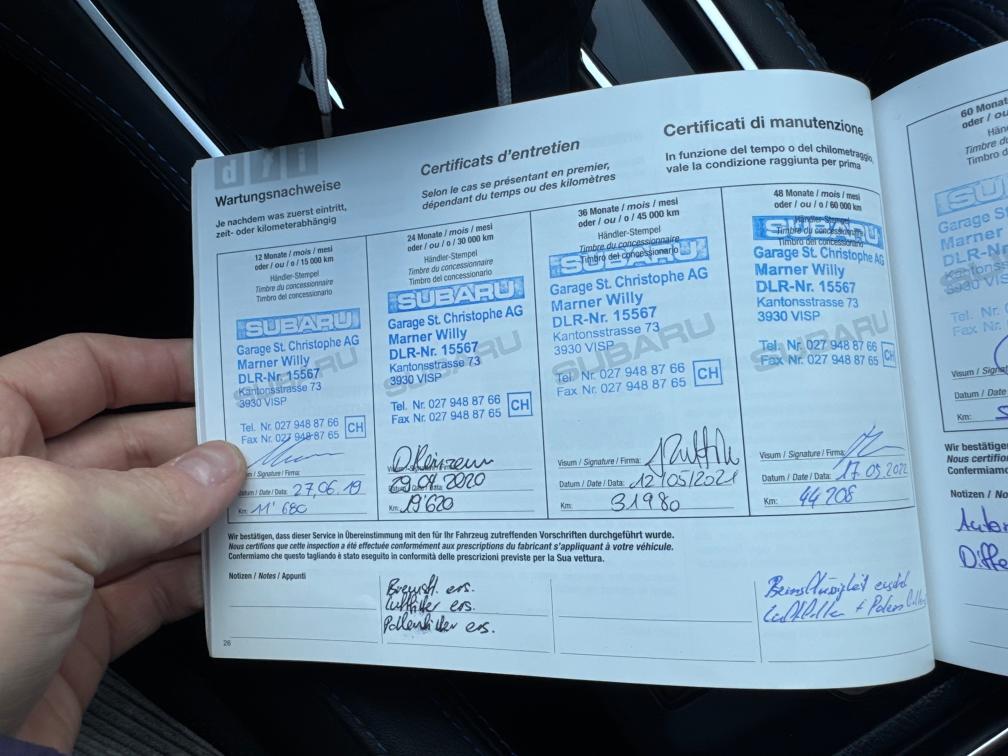 dfi
Wartungsnachweise
Je nachdem was zuerst eintritt,
zeit- oder kilometerabhängig
Certificats d'entretien
Selon le cas se présentant en premier,
dépendant du temps ou des kilomètres
Certificati di manutenzione
In funzione del tempo o del chilometraggio,
vale la condizione raggiunta per prima
12 Monate / mois / mesi
oder / ou / o / 15 000 km
Händler-Stempel
Timbre du concessionnaire
Timbro del concessionario
SUBARU
Garage St. Christophe AG
Marner Willy
DLR-Nr. 15567
Kantonsstrasse 73
3930 VISP
SUBARU
Tel. Nr. 027 948 87 66
Fax Nr. 027 948 87 65
CH
Datum / Date / Data: 27.06.19
Km: 11'680
24 Monate / mois / mesi
oder / ou / o / 30 000 km
Händler-Stempel
Timbre du concessionnaire
Timbro del concessionario
SUBARU
Garage St. Christophe AG
Marner Willy
DLR-Nr. 15567
Kantonsstrasse 73
3930 VISP
SUBARU
Tel. Nr. 027 948 87 66
Fax Nr. 027 948 87 65
CH
2020
Km: 19'620
36 Monate / mois / mesi
oder / ou / o / 45 000 km
Händler-Stempel
Timbre du concessionnaire
Timbro del concessionario
SUBARU
Garage St. Christophe AG
Marner Willy
DLR-Nr. 15567
Kantonsstrasse 73
3930 VISP
SUBARU
Tel. Nr. 027 948 87 66
Fax Nr. 027 948 87 65
CH
Visum / Signature / Firma:
Datum / Date / Data: 12/05/2021
Km: 31980
48 Monate / mois / mesi
oder / ou / o / 60 000 km
Händler-Stempel
Timbre du concessionnaire
Timbro del concessionario
SUBARU
Garage St. Christophe AG
Marner Willy
DLR-Nr. 15567
Kantonsstrasse 73
3930 VISP
SUBARU
Tel. Nr. 027 948 87 66
Fax Nr. 027 948 87 65
CH
Visum / Signature / Firma:
Datum / Date / Data: 17.05.2022
Km: 44208
Wir bestätigen, dass dieser Service in Übereinstimmung mit den für Ihr Fahrzeug zutreffenden Vorschriften durchgeführt wurde.
Nous certifions que cette inspection a été effectuée conformément aux prescriptions du fabricant s'appliquant à votre véhicule.
Confermiamo che questo tagliando è stato eseguito in conformità delle prescrizioni previste per la Sua vettura.
Notizen / Notes / Appunti
ers.
Luftfilter ers.
Pollenfilter ers.
Bremsflüssigkeit
Luftfilter + Pollen
26
60 Monate
oder / ou
Händ
Timbre du
Timbro d
SUBARU
Garage
Marner
DLR-N
Kantons
3930 VIS
Tel. N
Fax
Visum / Sign
Datum / D
Km:
Wir bestätige
Nous certifio
Confermiamo
Notizen / No
Diffe